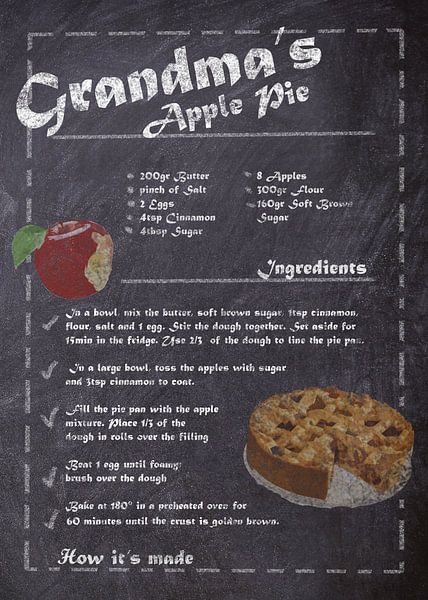 Grandma's
Apple Pie
200gr Butter
pinch of Salt
2 Eggs
4tsp Cinnamon
4tbsp Sugar
8 Apples
300gr Flour
160gr Soft Brown
Sugar
Ingredients
In a bowl, mix the butter, soft brown sugar, 1tsp cinnamon,
flour, salt and 1 egg. Stir the dough together. Set aside for
15min in the fridge. Use 2/3 of the dough to line the pie pan.
In a large bowl, toss the apples with sugar
and 3tsp cinnamon to coat.
Fill the pie pan with the apple
mixture. Place 1/3 of the
dough in rolls over the filling
Beat 1 egg until foamy;
brush over the dough
Bake at 180° in a preheated oven for
60 minutes until the crust is golden brown.
How it's made